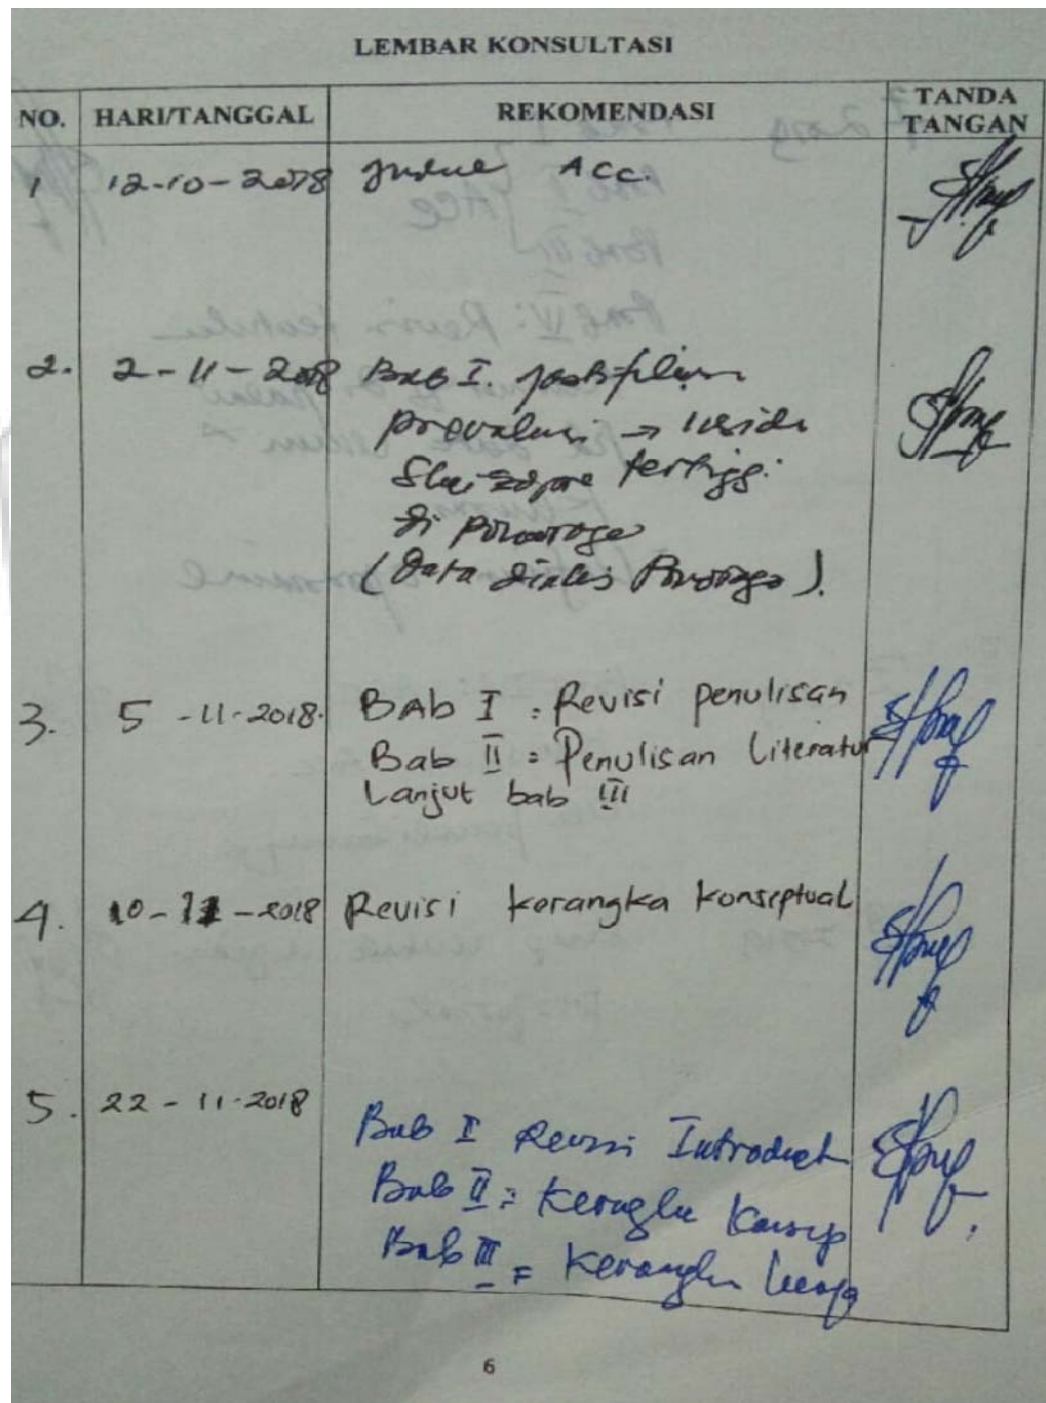 LEMBAR KONSULTASI
NO. HARI/TANGGAL REKOMENDASI TANDA TANGAN
1 12-10-2018 Judul ACC.
2. 2-11-2018 Bab I.
prevalensi →
tertinggi
di Ponorogo
(Data dinkes Ponorogo).
3. 5-11-2018. BAb I : Revisi penulisan
Bab II : Penulisan Literatur
Lanjut bab III
4. 10-11-2018 Revisi kerangka konseptual
5. 22-11-2018
Bab I Revisi Introduct
Bab II : Kerangka Konsep
Bab III = Kerangka kerja
6